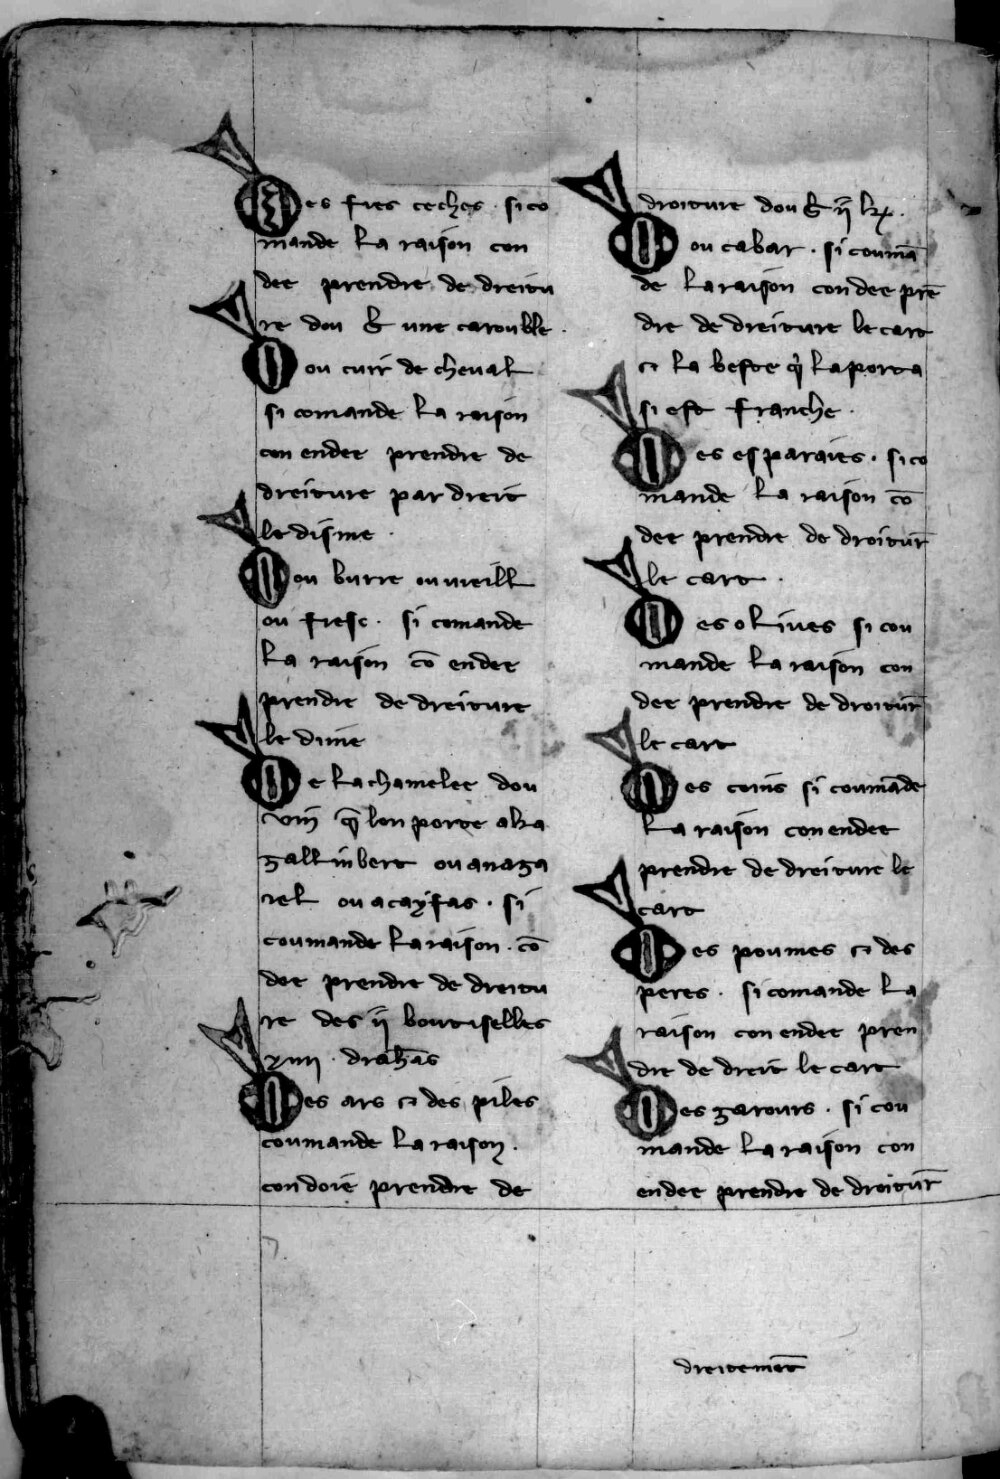 Des fres ceches · si co
mande la raison con
dee prendre de dreitu
re dou ƀ une carouble ·
Dou cuir de cheval
si comande la raison
con endee prendre de
dreiture par dreit
le disme ·
Dou burre ou ueill
ou fresc · si comande
la raison cō endee
prendre de dreiture
le dime
De la chamelee dou
vin q̄ lon porte a la
gallin bert ou a naza
rel ou a cayfas · si
coumande la raison · cō
doe prendre de dreitu
re des ij boutiselles
xiiij · drahās
Des ars et des piles
coumande la raison ·
con doie prendre de
droiture dou ƀ ij kͬ ·
Dou cabar · si coumā
de la raison con dee prē
dre de dreiture le cart
et la beste q̇ la porta
si est franche ·
Des esparaies · si co
mande la raison cō
dee prendre de droitur̄
le cart ·
Des oliues si cou
mande la raison con
dee prendre de droitur̄
le cart
Des coins si coumāde
la raison con endee
prendre de dreiture le
cart
Des poumes et des
peres · si comande la
raison con endee pren
dre de dreit le cart
Des garours · si cou
mande la raison con
endee prendre de droitur̄
dreitemēt